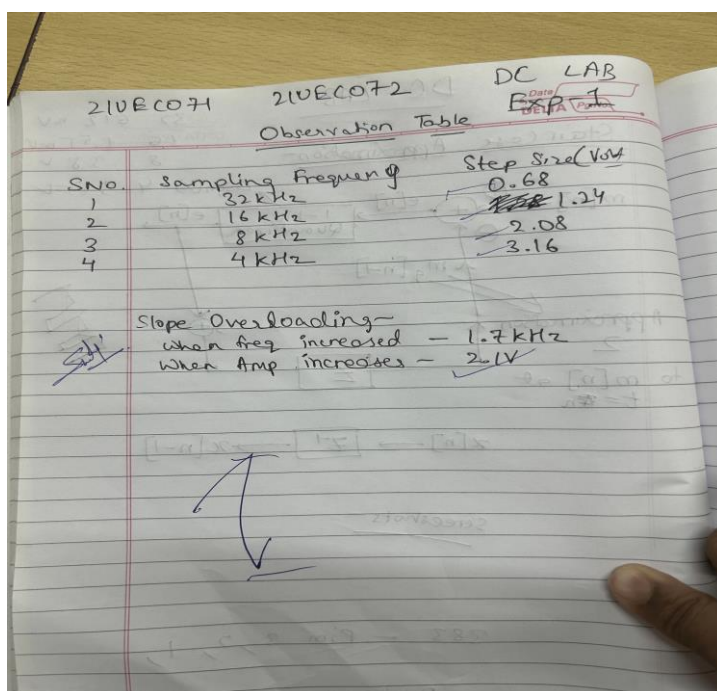 DC LAB
21UEC071 21UEC072 Exp-1
Observation Table
SNO. Sampling Frequency Step Size (Volt)
1 32 kHz 0.68
2 16 kHz 1.24
3 8 kHz 2.08
4 4 kHz 3.16
Slope Overloading-
when freq increased - 1.7 kHz
When Amp increases - 2.1V